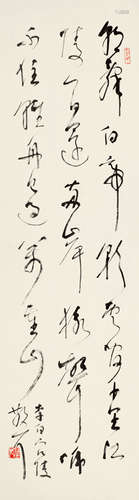 朝辭白帝彩雲間千里江
陵一日還兩岸猿聲啼
不住輕舟已過萬重山
李白下江陵
散耳